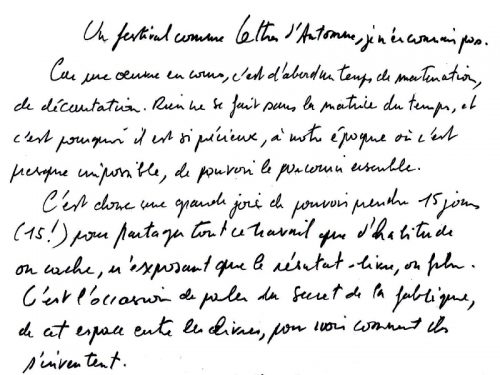 Un festival comme Lettres d'Automne, je n'en connais pas.
Car une œuvre en cours, c'est d'abord un temps de maturation,
de décantation. Rien ne se fait sans la matrice du temps, et
c'est pourquoi il est si précieux, à notre époque où c'est
presque impossible, de pouvoir le parcourir ensemble.
C'est donc une grande joie de pouvoir prendre 15 jours
(15!) pour partager tout ce travail que d'habitude
on cache, n'exposant que le résultat - livre, ou film.
C'est l'occasion de parler du secret de la fabrique,
de cet espace entre les livres, pour voir comment ils
s'inventent.